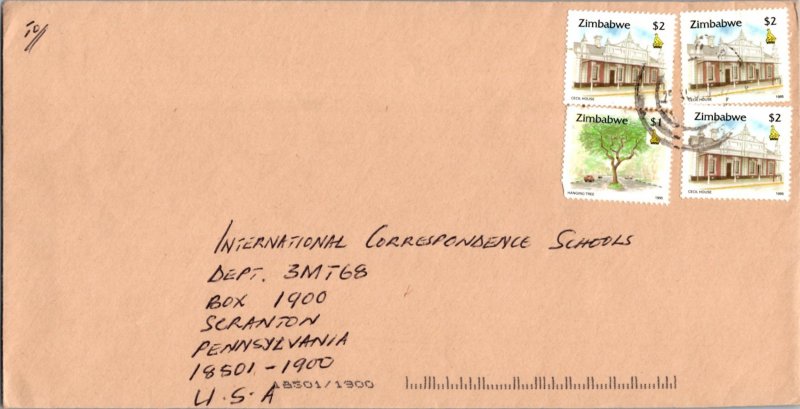 To/
Zimbabwe $2
CECIL HOUSE 1995
Zimbabwe $2
CECIL HOUSE 1995
Zimbabwe $1
HANGING TREE 1995
Zimbabwe $2
CECIL HOUSE 1995
INTERNATIONAL CORRESPONDENCE SCHOOLS
DEPT. 3MT68
BOX 1900
SCRANTON
PENNSYLVANIA
18501-1900
18501/1900
U.S.A